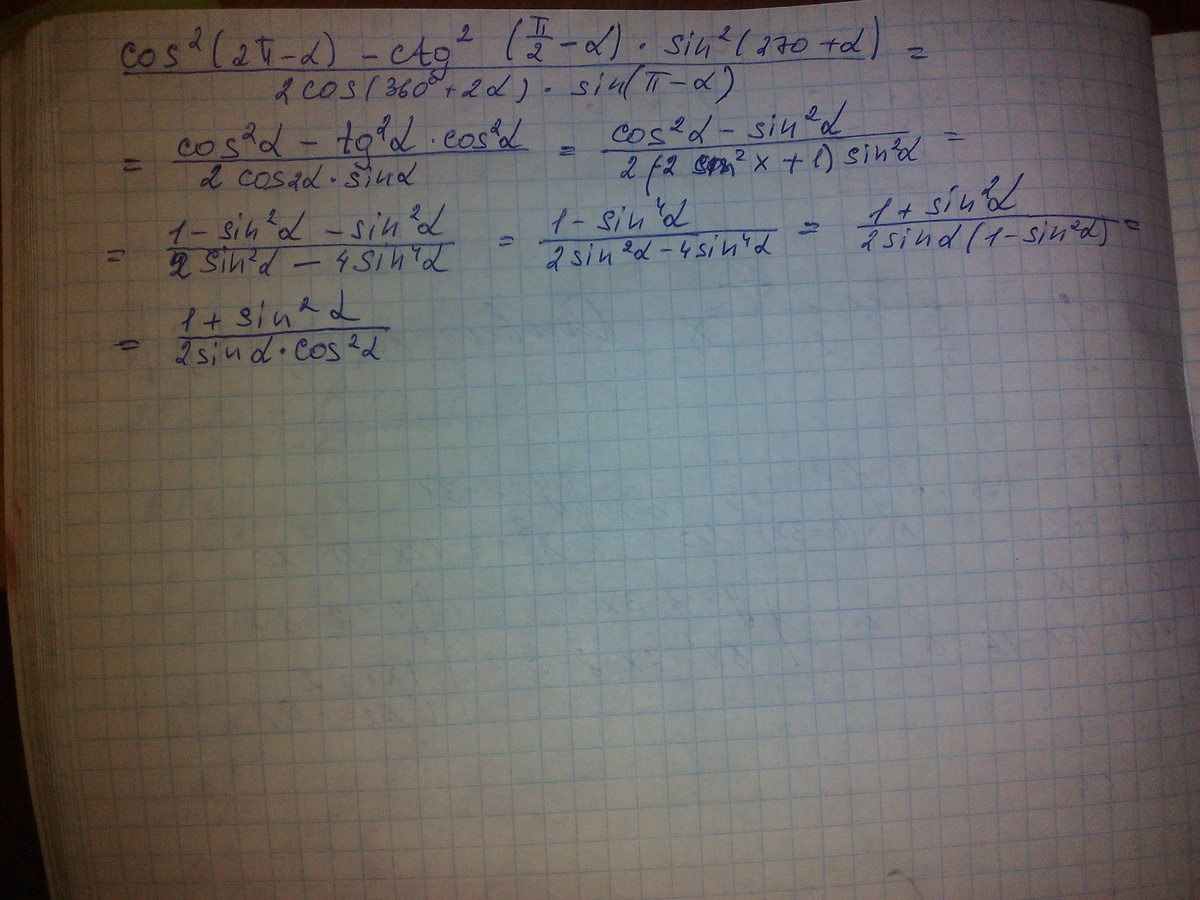 cos²(2π-α) - ctg²(π/2 - α) · sin²(270+α) / 2cos(360°+2α) · sin(π-α) =
= cos²α - tg²α · cos²α / 2 cos2α · sinα = cos²α - sin²α / 2(-2 sin²x + 1) sin²α =
= 1 - sin²α - sin²α / 2 sin²α - 4 sin⁴α = 1 - sin⁴α / 2 sin²α - 4 sin⁴α = 1 + sin²α / 2 sinα (1 - sin²α) =
= 1 + sin²α / 2 sinα · cos²α